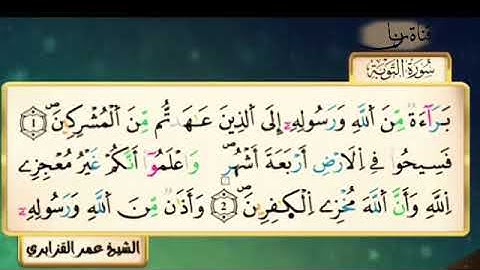 قناة
سُورَةُ التَّوْبَةِ
بَرَآءَةٌ مِّنَ اَ۬للَّهِ وَرَسُولِهِۦٓ إِلَى اَ۬لذِينَ عَٰهَدتُّم مِّنَ اَ۬لْمُشْرِكِينَۖ ۝١
فَسِيحُواْ فِے اِ۬لَارْضِ أَرْبَعَةَ أَشْهُرٖۖ وَاعْلَمُوٓاْ أَنَّكُمْ غَيْرُ مُعْجِزِے
اِ۬للَّهِ وَأَنَّ اَ۬للَّهَ مُخْزِے اِ۬لْكٰ۪فِرِينَۖ ۝٢ وَأَذَٰنٞ مِّنَ اَ۬للَّهِ وَرَسُولِهِۦٓ
الشيخ عمر القزابري